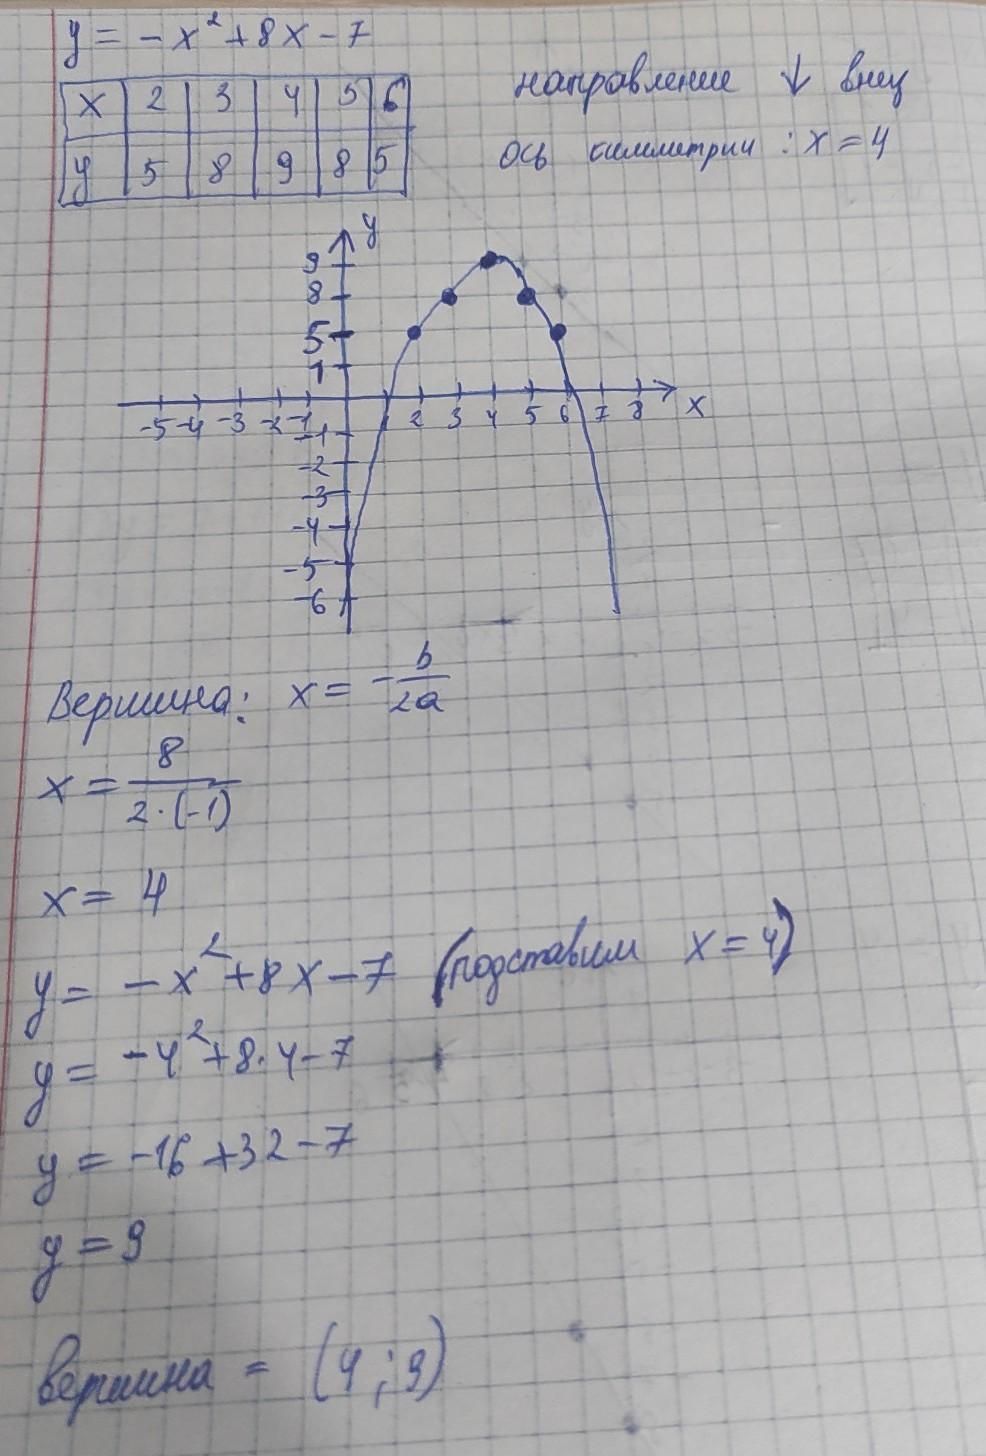 y = -x² + 8x - 7
x 2 3 4 5 6
y 5 8 9 8 5
направление ↓ вниз
ось симметрии : x = 4
y
9
8
5
1
-5 -4 -3 -2 -1 2 3 4 5 6 7 8 x
-1
-2
-3
-4
-5
-6
Вершина: x = -b/2a
x = 8/2·(-1)
x = 4
y = -x² + 8x - 7 (подставим x = 4)
y = -4² + 8·4 - 7
y = -16 + 32 - 7
y = 9
вершина = (4 ; 9)